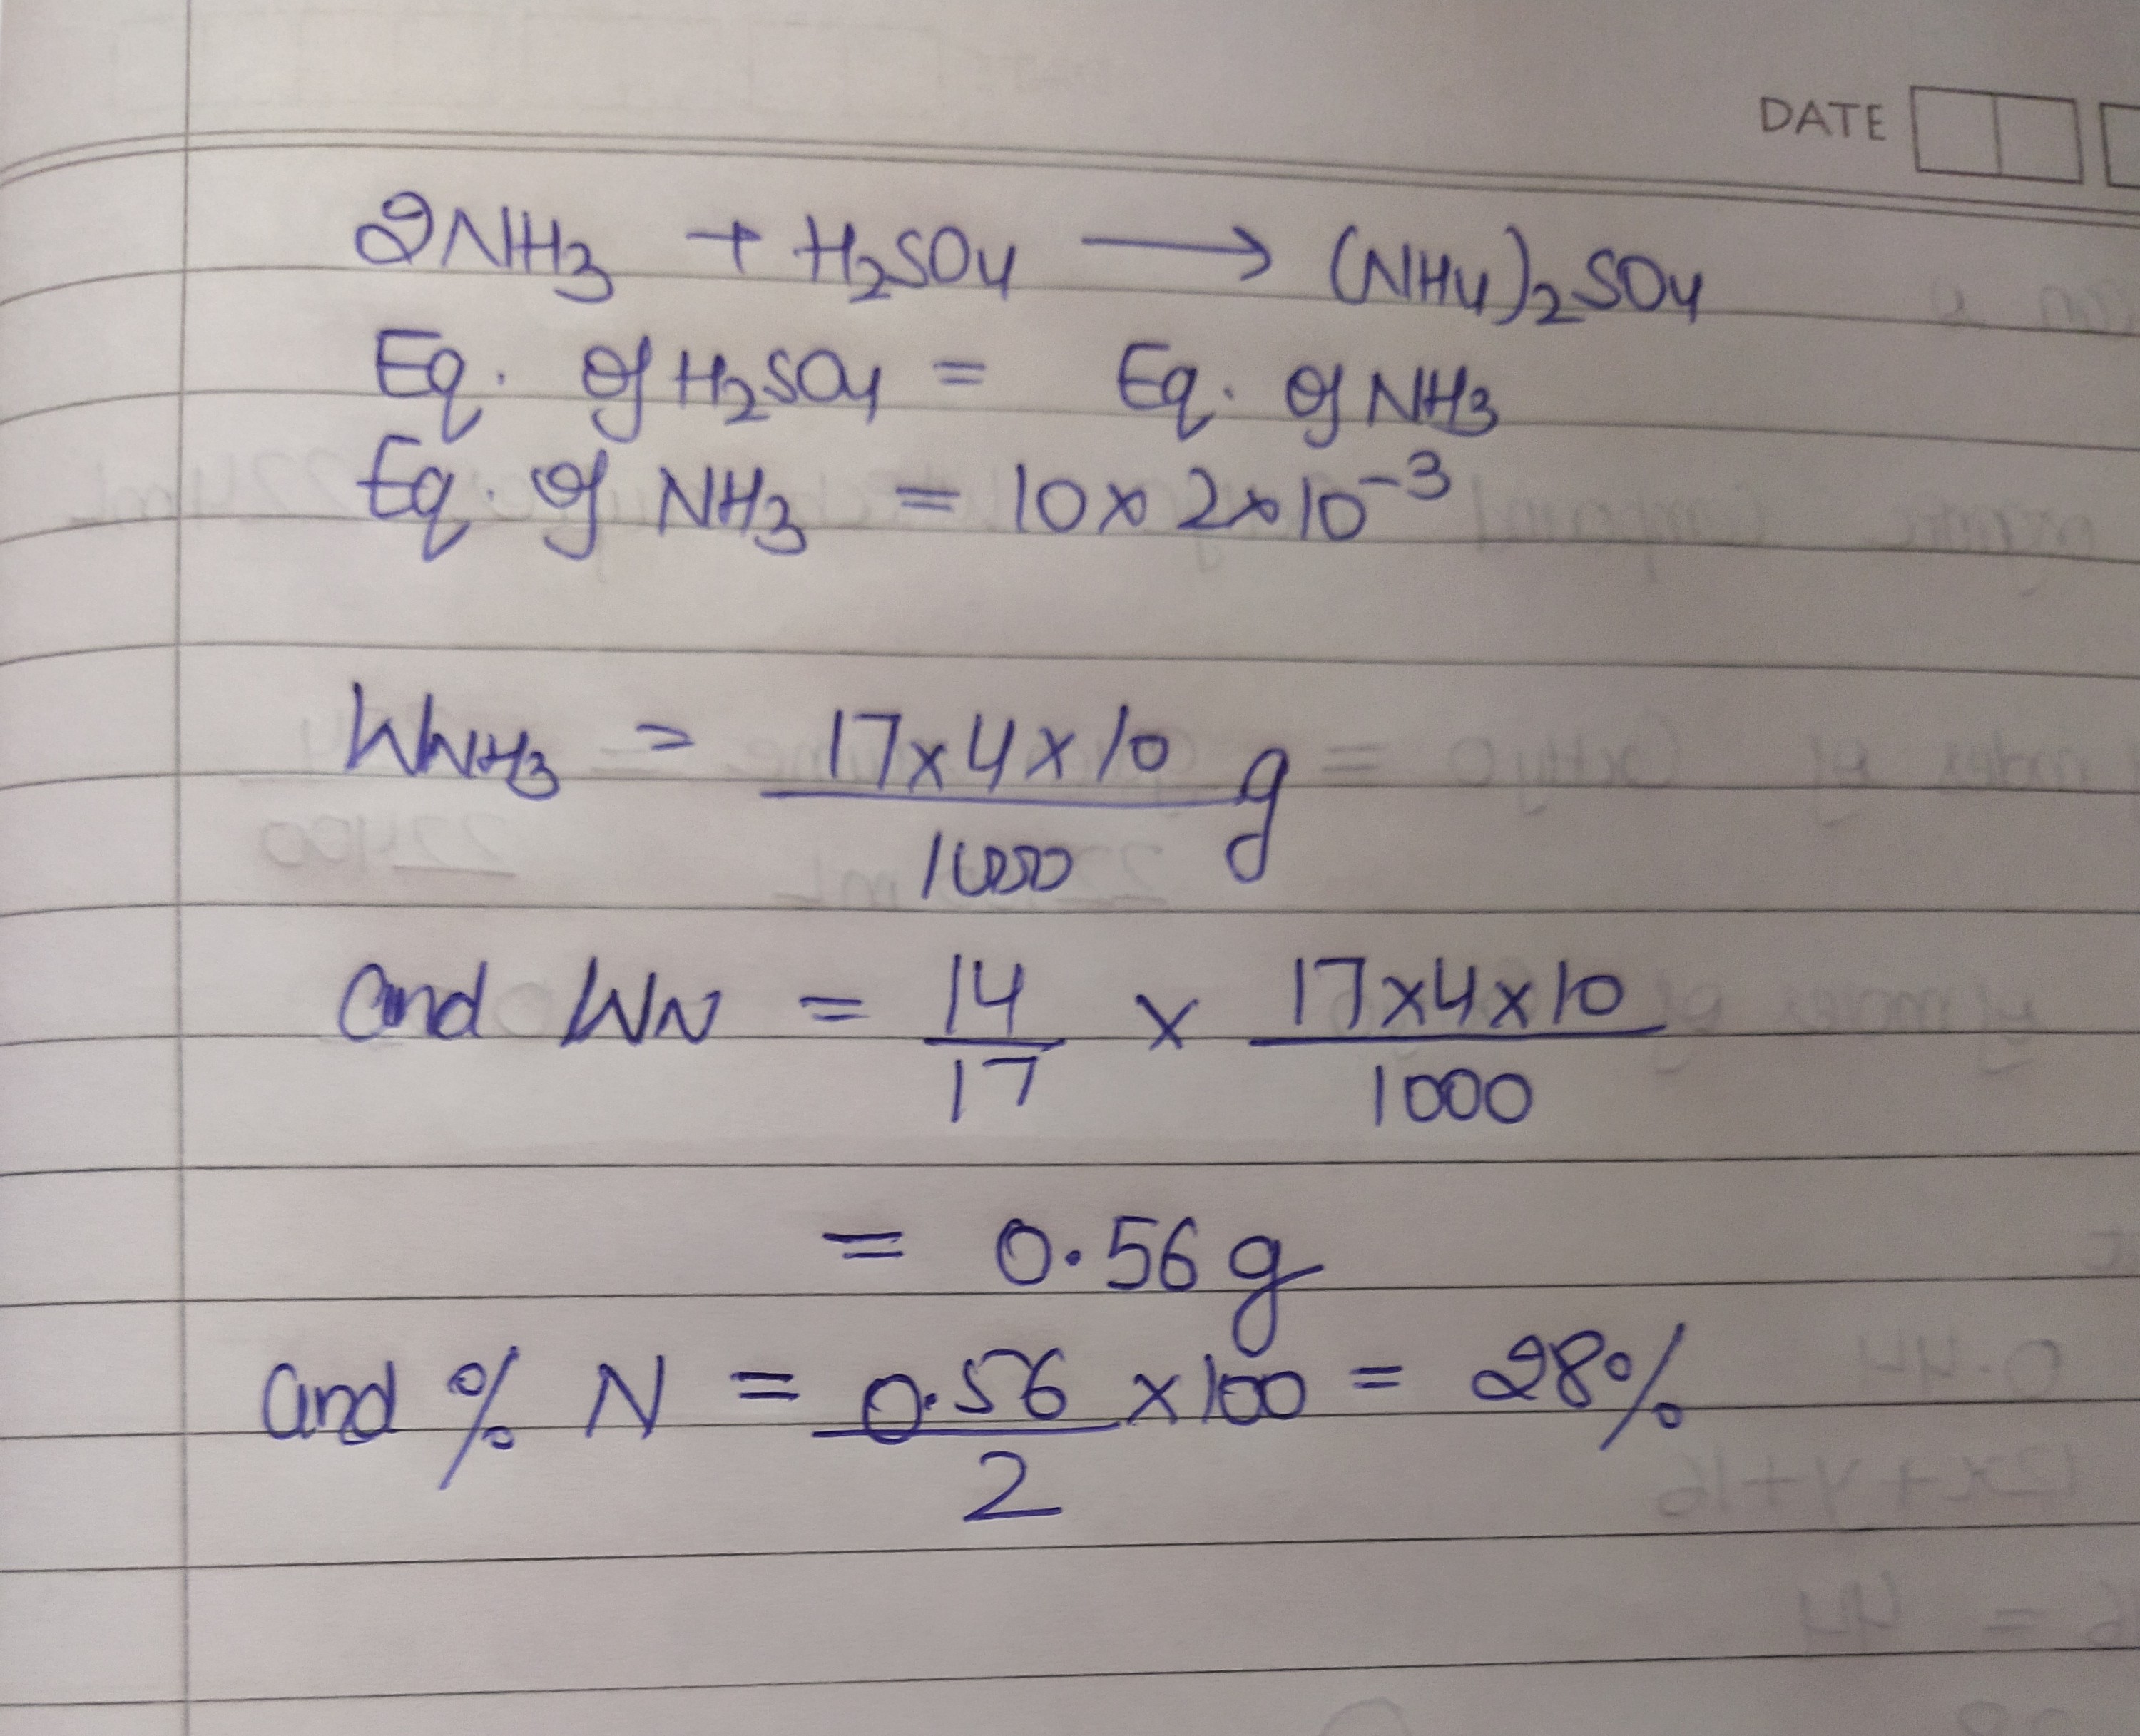 DATE
2NH3 + H2SO4 ⟶ (NH4)2SO4
Eq. of H2SO4 = Eq. of NH3
Eq. of NH3 = 10 × 2 × 10^-3
WNH3 = 17×4×10 / 1000 g
and WN = 14/17 × 17×4×10 / 1000
= 0.56 g
and % N = 0.56/2 × 100 = 28%